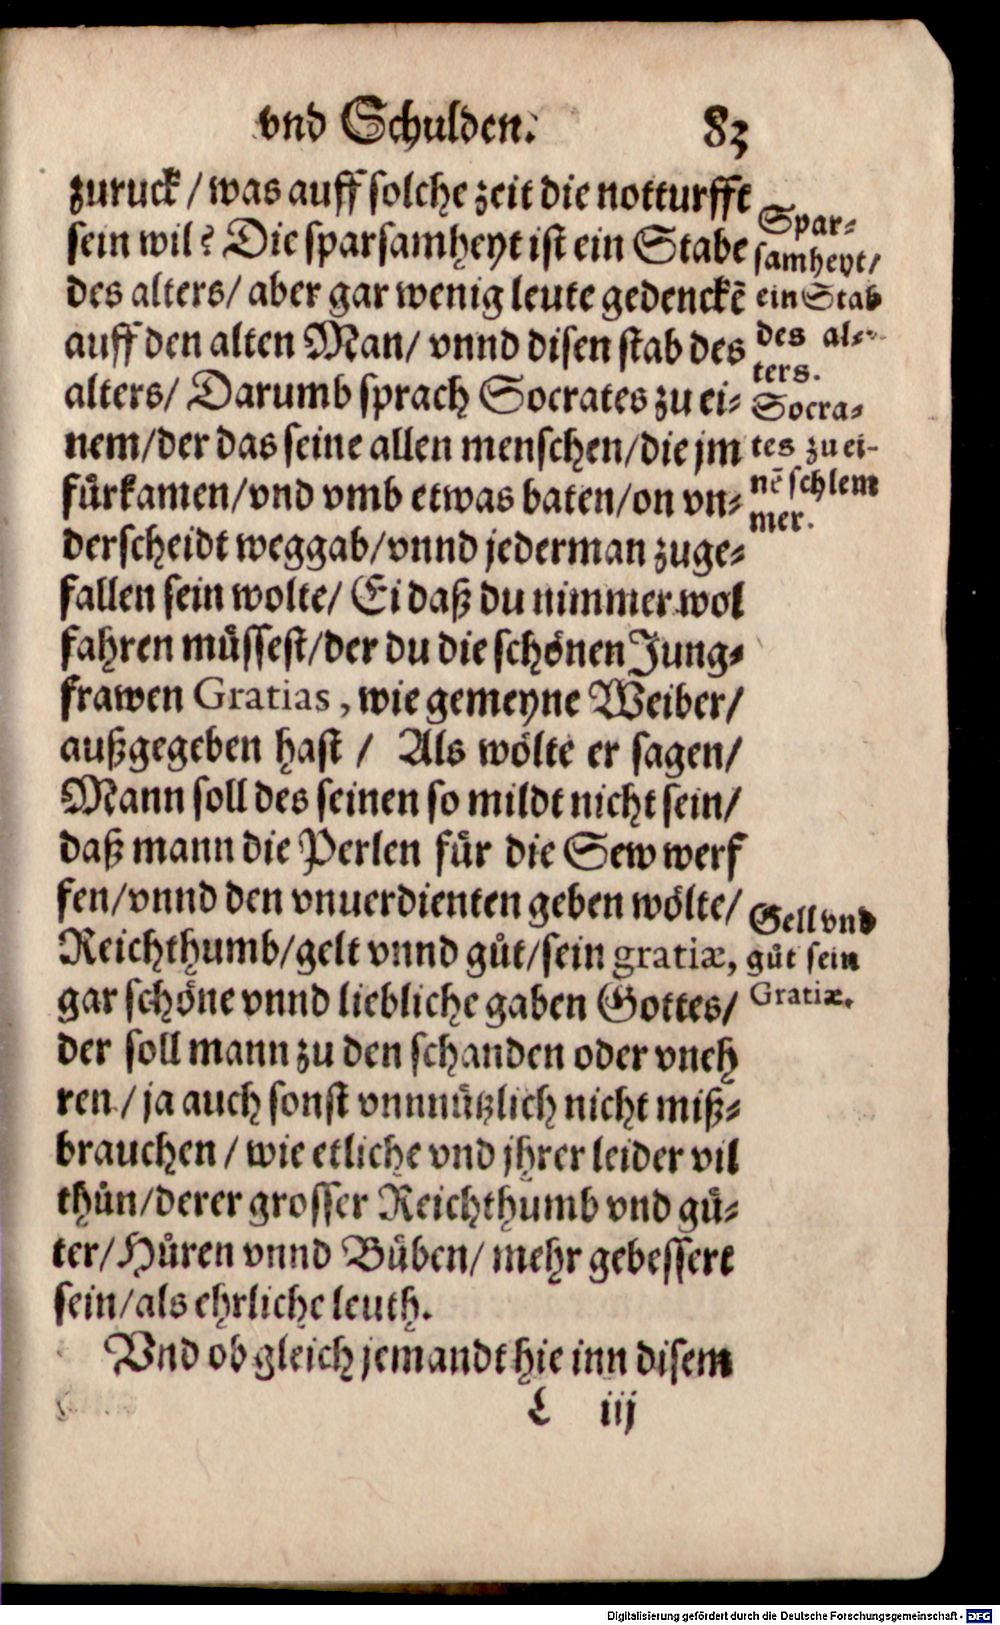 vnd Schulden. 83
zuruck / was auff solche zeit die notturfft
sein wil? Die sparsamheyt ist ein Stabe
des alters/ aber gar wenig leute gedenckẽ
auff den alten Man/ vnnd disen stab des
alters/ Darumb sprach Socrates zu ei-
nem/der das seine allen menschen/die jm
fürkamen/vnd vmb etwas baten/on vn-
derscheidt weggab/vnnd jederman zuge-
fallen sein wolte/ Ei daß du nimmer wol
fahren müssest/der du die schönen Jung-
frawen Gratias, wie gemeyne Weiber/
außgegeben hast / Als wölte er sagen/
Mann soll des seinen so mildt nicht sein/
daß mann die Perlen für die Sew werf
fen/vnnd den vnuerdienten geben wölte/
Reichthumb/gelt vnnd gůt/sein gratiæ,
gar schöne vnnd liebliche gaben Gottes/
der soll mann zu den schanden oder vneh
ren / ja auch sonst vnnnützlich nicht miß-
brauchen / wie etliche vnd jhrer leider vil
thůn/derer grosser Reichthumb vnd gü-
ter/Hůren vnnd Bůben/ mehr gebessert
sein/als ehrliche leuth.
Vnd ob gleich jemandt hie inn disem
L iij
Spar-
samheyt/
ein Stab
des al-
ters.
Socra-
tes zu ei-
nẽ schlem
mer.
Gell vnd
gůt sein
Gratiæ.
Digitalisierung gefördert durch die Deutsche Forschungsgemeinschaft - DFG